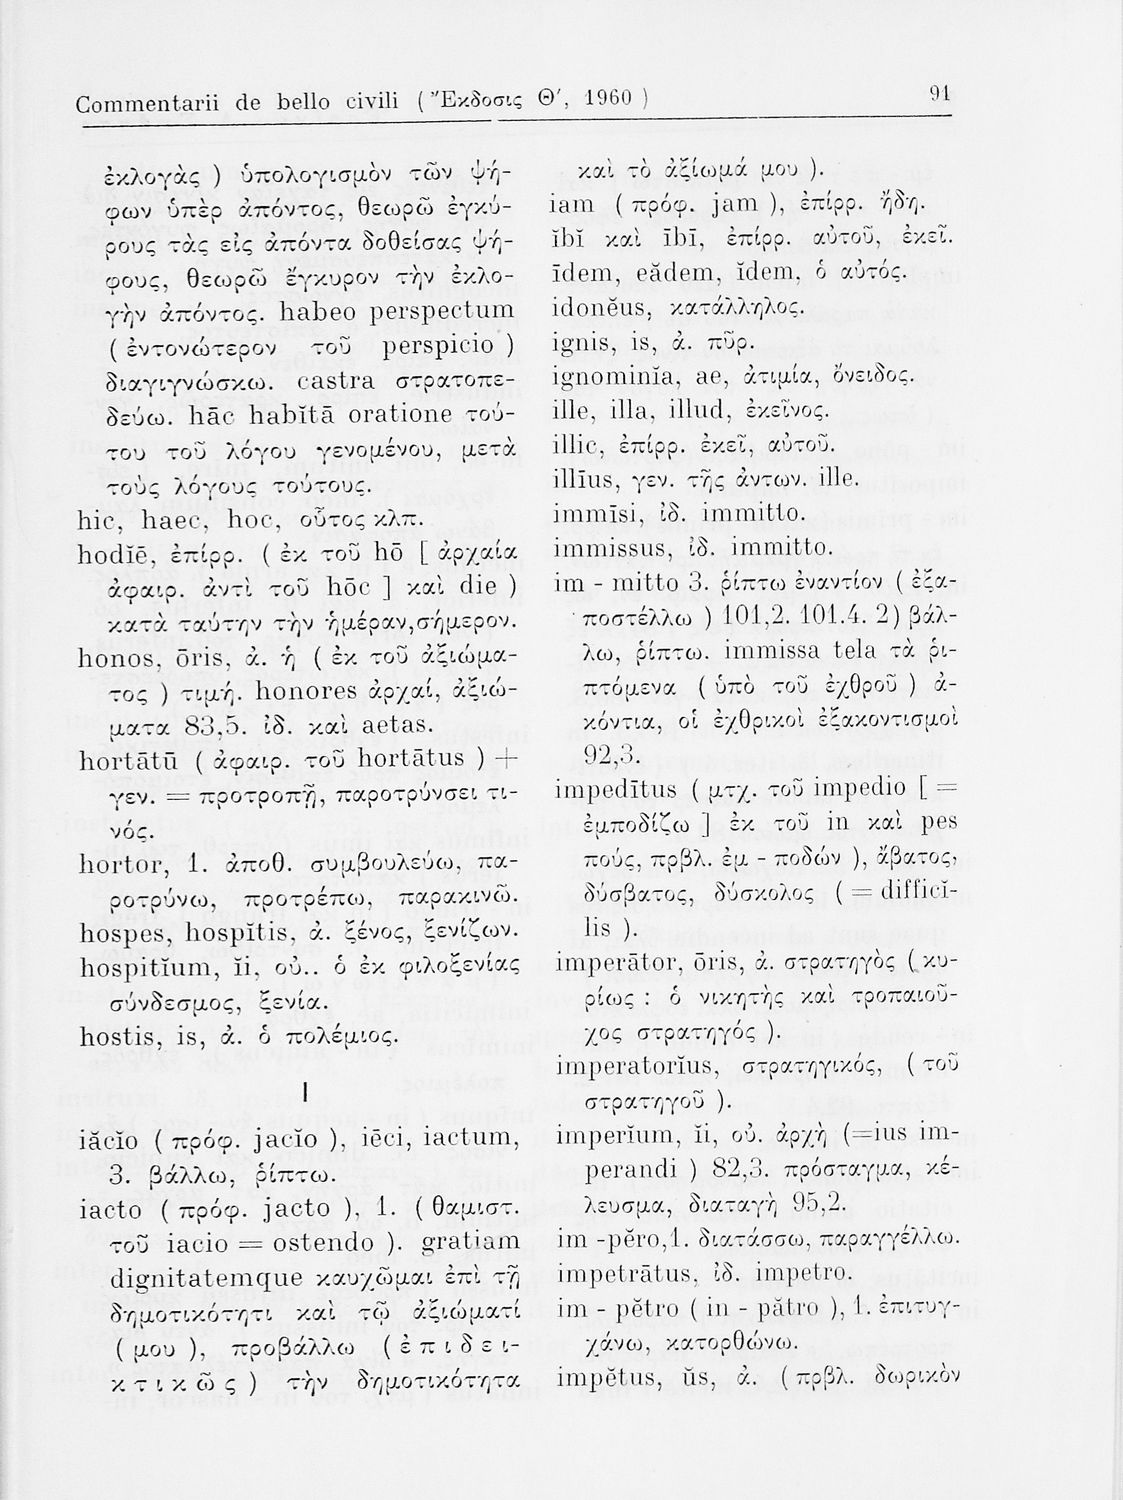 Commentarii de bello civili ( Ἔκδοσις Θ′, 1960 )
91
ἐκλογὰς ) ὑπολογισμὸν τῶν ψή-
φων ὑπὲρ ἀπόντος, θεωρῶ ἐγκύ-
ρους τὰς εἰς ἀπόντα δοθείσας ψή-
φους, θεωρῶ ἔγκυρον τὴν ἐκλο-
γὴν ἀπόντος. habeo perspectum
( ἐντονώτερον τοῦ perspicio )
διαγιγνώσκω. castra στρατοπε-
δεύω. hāc habĭtā oratione τού-
του τοῦ λόγου γενομένου, μετὰ
τοὺς λόγους τούτους.
hic, haec, hoc, οὗτος κλπ.
hodĭē, ἐπίρρ. ( ἐκ τοῦ hō [ ἀρχαία
ἀφαιρ. ἀντὶ τοῦ hōc ] καὶ die )
κατὰ ταύτην τὴν ἡμέραν,σήμερον.
honos, ōris, ἀ. ἡ ( ἐκ τοῦ ἀξιώμα-
τος ) τιμή. honores ἀρχαί, ἀξιώ-
ματα 83,5. ἰδ. καὶ aetas.
hortātū ( ἀφαιρ. τοῦ hortātus ) +
γεν. = προτροπῇ, παροτρύνσει τι-
νός.
hortor, 1. ἀποθ. συμβουλεύω, πα-
ροτρύνω, προτρέπω, παρακινῶ.
hospes, hospĭtis, ἀ. ξένος, ξενίζων.
hospitĭum, ĭi, οὐ.. ὁ ἐκ φιλοξενίας
σύνδεσμος, ξενία.
hostis, is, ἀ. ὁ πολέμιος.
I
iăcĭo ( πρόφ. jacĭo ), iēci, iactum,
3. βάλλω, ῥίπτω.
iacto ( πρόφ. jacto ), 1. ( θαμιστ.
τοῦ iacio = ostendo ). gratiam
dignitatemque καυχῶμαι ἐπὶ τῇ
δημοτικότητι καὶ τῷ ἀξιώματί
( μου ), προβάλλω ( ἐ π ι δ ε ι-
κ τ ι κ ῶ ς ) τὴν δημοτικότητα
καὶ τὸ ἀξίωμά μου ).
iam ( πρόφ. jam ), ἐπίρρ. ἤδη.
ĭbĭ καὶ ībī, ἐπίρρ. αὐτοῦ, ἐκεῖ.
īdem, eădem, ĭdem, ὁ αὐτός.
idonĕus, κατάλληλος.
ignis, is, ἀ. πῦρ.
ignominĭa, ae, ἀτιμία, ὄνειδος.
ille, illa, illud, ἐκεῖνος.
illic, ἐπίρρ. ἐκεῖ, αὐτοῦ.
illīus, γεν. τῆς ἀντων. ille.
immīsi, ἰδ. immitto.
immissus, ἰδ. immitto.
im - mitto 3. ῥίπτω ἐναντίον ( ἐξα-
ποστέλλω ) 101,2. 101.4. 2) βάλ-
λω, ῥίπτω. immissa tela τὰ ῥι-
πτόμενα ( ὑπὸ τοῦ ἐχθροῦ ) ἀ-
κόντια, οἱ ἐχθρικοὶ ἐξακοντισμοὶ
92,3.
impedītus ( μτχ. τοῦ impedio [ =
ἐμποδίζω ] ἐκ τοῦ in καὶ pes
πούς, πρβλ. ἐμ - ποδών ), ἄβατος,
δύσβατος, δύσκολος ( = difficĭ-
lis ).
imperātor, ōris, ἀ. στρατηγὸς ( κυ-
ρίως : ὁ νικητὴς καὶ τροπαιοῦ-
χος στρατηγός ).
imperatorĭus, στρατηγικός, ( τοῦ
στρατηγοῦ ).
imperĭum, ĭi, οὐ. ἀρχὴ (=ius im-
perandi ) 82,3. πρόσταγμα, κέ-
λευσμα, διαταγὴ 95,2.
im -pĕro,1. διατάσσω, παραγγέλλω.
impetrātus, ἰδ. impetro.
im - pĕtro ( in - pătro ), 1. ἐπιτυγ-
χάνω, κατορθώνω.
impĕtus, ŭs, ἀ. ( πρβλ. δωρικὸν